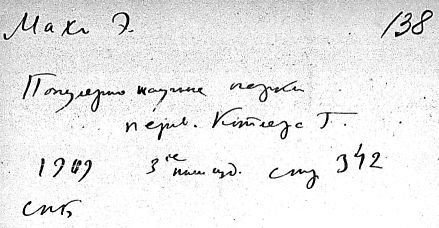 Махъ Э. 138
Популярно научные очерки
перев. Котляра Г.
1909 3ье изд. стр 342
СПБ